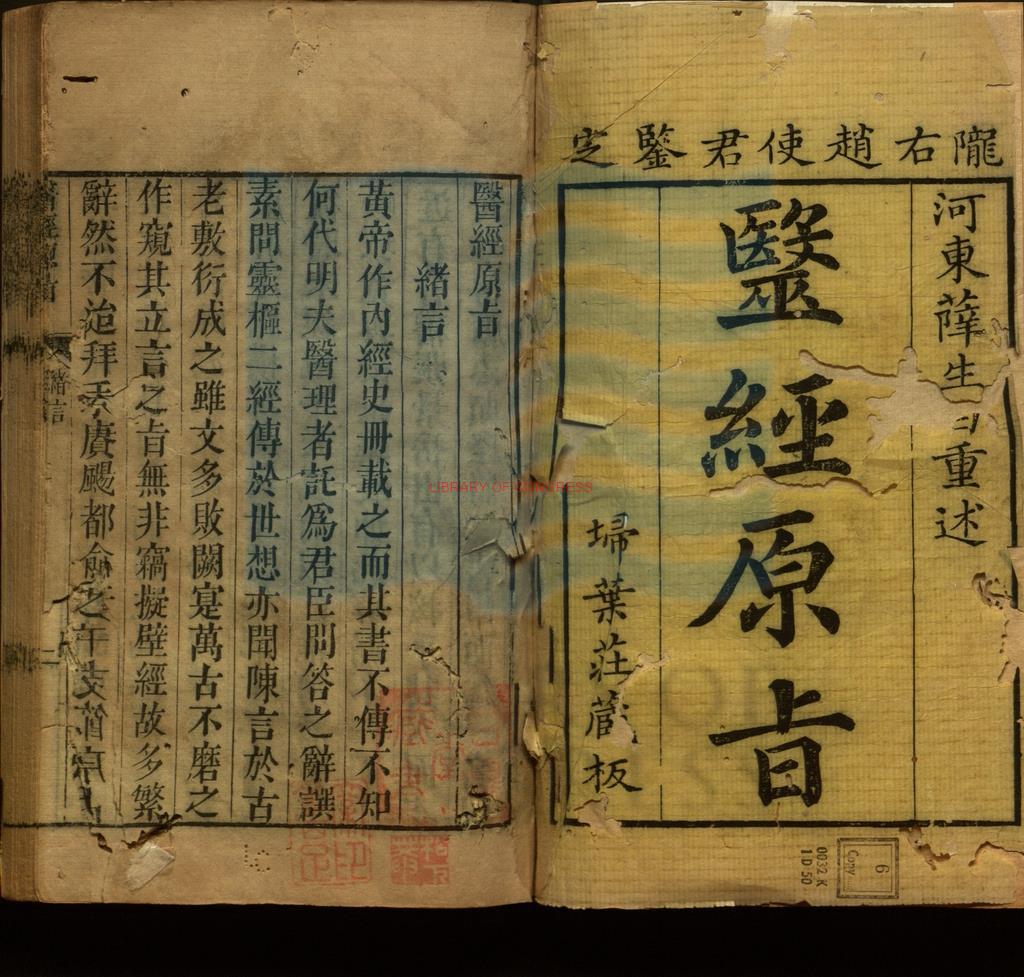 隴右趙使君鑒定
河東薛生白重述
毉經原旨
埽葉莊藏板
醫經原旨
緒言
黃帝作內經史冊載之而其書不傳不知
何代明夫醫理者託為君臣問答之辭譔
素問靈樞二經傳於世想亦聞陳言於古
老敷衍成之雖文多敗闕寔萬古不磨之
作窺其立言之旨無非竊擬壁經故多繁
辭然不迨拜手賡颺都俞之
緒言
LIBRARY OF CONGRESS
6
Copy
0032.K
1D 50